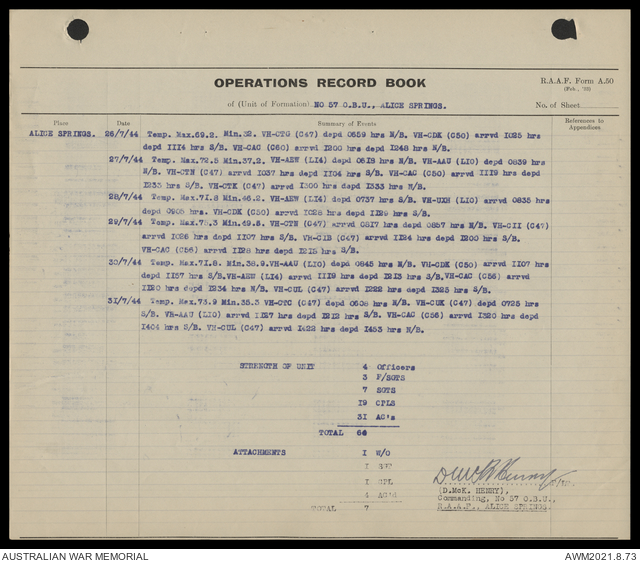 OPERATIONS RECORD BOOK
R.A.A.F. Form A.50
(Feb., '38)
of (Unit of Formation) NO 57 O.B.U., ALICE SPRINGS.
No. of Sheet
Place Date Summary of Events References to Appendices.
ALICE SPRINGS. 26/7/44 Temp. Max.69.2. Min.32. VH-CTG (C47) depd 0559 hrs N/B. VH-CDK (C50) arrvd I025 hrs
depd III4 hrs S/B. VH-CAC (C60) arrvd I200 hrs depd I248 hrs N/B.
27/7/44 Temp. Max.72.5 Min.37.2. VH-AEW (LI4) depd 0618 hrs N/B. VH-AAU (LI0) depd 0839 hrs
N/B. VH-CTH (C47) arrvd I037 hrs depd II04 hrs S/B. VH-CAC (C50) arrvd III9 hrs depd
I235 hrs S/B. VH-CTK (C47) arrvd I300 hrs depd I333 hrs N/B.
28/7/44 Temp. Max.7I.8 Min.46.2. VH-AEW (LI4) depd 0737 hrs S/B. VH-UXH (LI0) arrvd 0835 hrs
depd 0905 hrs. VH-CDK (C50) arrvd I028 hrs depd II29 hrs S/B.
29/7/44 Temp. Max.75.3 Min.49.8. VH-CTH (C47) arrvd 0817 hrs depd 0857 hrs N/B. VH-CII (C47)
arrvd I026 hrs depd II07 hrs S/B. VH-CIB (C47) arrvd II24 hrs depd I200 hrs S/B.
VH-CAC (C56) arrvd II28 hrs depd I2I5 hrs S/B.
30/7/44 Temp. Max.7I.8. Min.38.9.VH-AAU (LI0) depd 0845 hrs N/B. VH-CDK (C50) arrvd II07 hrs
depd II57 hrs S/B.VH-AEW (LI4) arrvd III9 hrs depd I2I3 hrs S/B.VH-CAC (C56) arrvd
II20 hrs depd I234 hrs N/B. VH-CUL (C47) arrvd I222 hrs depd I325 hrs S/B.
3I/7/44 Temp. Max.73.9 Min.35.3 VH-CTC (C47) depd 0608 hrs N/B. VH-CUK (C47) depd 0725 hrs
S/B. VH-AAU (LI0) arrvd II27 hrs depd I2I2 hrs S/B. VH-CAC (C56) arrvd I320 hrs depd
I404 hrs S/B. VH-CUL (C47) arrvd I422 hrs depd I453 hrs N/B.
STRENGTH OF UNIT 4 Officers
3 F/SGTS
7 SGTS
I9 CPLS
3I AC's
TOTAL
ATTACHMENTS I W/O
I SGT
I CPL
4 AC's
TOTAL 7
(D.McK. HENRY),
Commanding, No 57 O.B.U.,
R.A.A.F., ALICE SPRINGS.
AUSTRALIAN WAR MEMORIAL
AWM2021.8.73